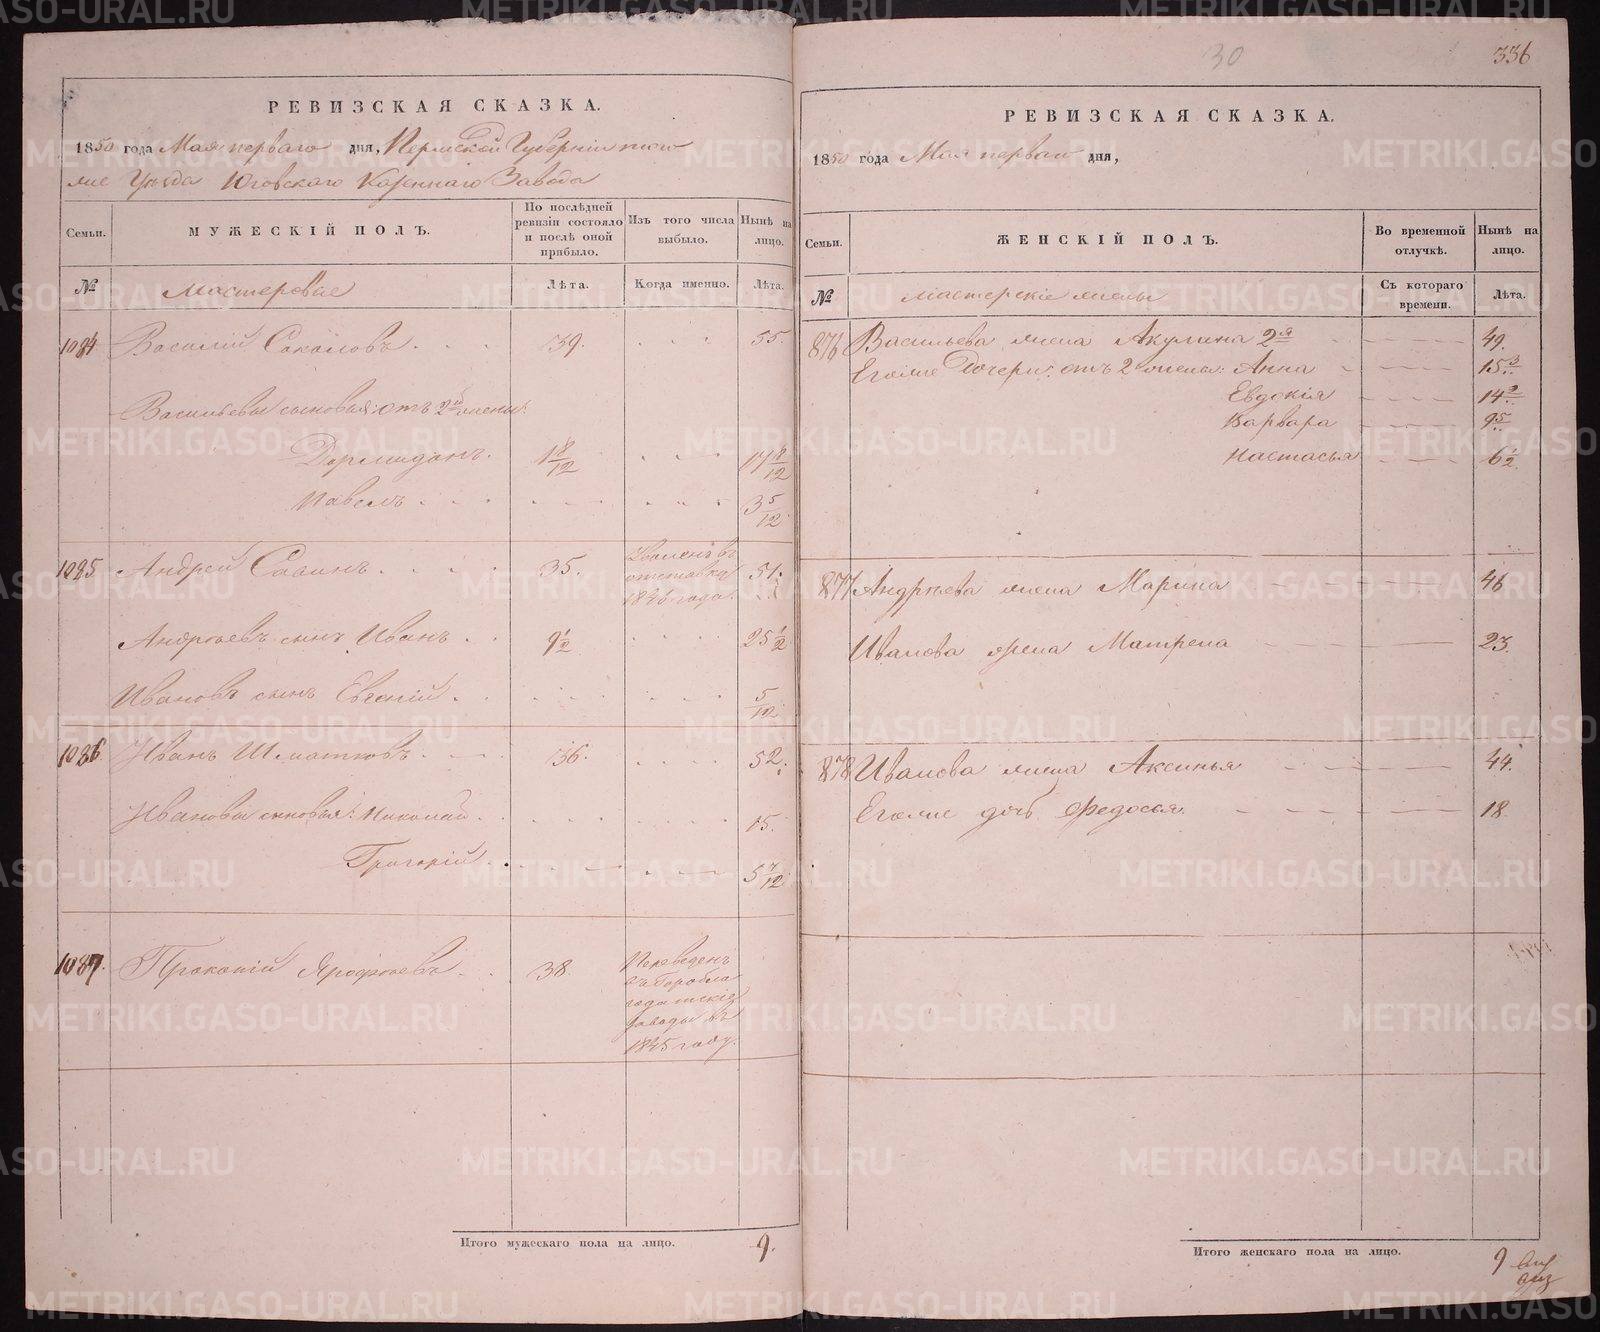 30
336
РЕВИЗСКАЯ СКАЗКА.
1850 года Мая перваго дня, Пермской Губерніи тою
же Уѣзда Юговскаго Казеннаго Завода
Семьи.
МУЖЕСКІЙ ПОЛЪ.
По послѣдней ревизіи состояло и послѣ оной прибыло.
Изъ того числа выбыло.
Нынѣ на лицо.
№
Мастеровые
Лѣта.
Когда именно.
Лѣта.
1084 Василій Соколовъ 39. 55.
Васильевы сыновья: отъ 2й жены:
Дормидонъ. 1 8/12 17 8/12
Павелъ 3 5/12
1085 Андрей Савинъ 35. Уволенъ въ отставку 1846 года. 51.
Андреевъ сынъ Иванъ 9 1/2 25 1/2
Ивановъ сынъ Евгеній 5/12
1086 Иванъ Шматковъ 36. 52.
Ивановы сыновья: Николай 15.
Григорій 5 7/12
1087. Прокопій Ярофѣевъ 38. Переведенъ въ Гороблагодатскіе заводы въ 1845 году.
Итого мужескаго пола на лицо. 9.
РЕВИЗСКАЯ СКАЗКА.
1850 года Мая перваго дня,
Семьи.
ЖЕНСКІЙ ПОЛЪ.
Во временной отлучкѣ.
Нынѣ на лицо.
№
Мастерскіе жены
Съ котораго времени.
Лѣта.
876 Васильева жена Акулина 2я 49.
Его же Дочери: отъ 2 жены: Анна 15
Евдокія 14
Варвара 9
Настасья 6 1/2
877 Андреева жена Марина 46
Иванова жена Матрена 23.
878 Иванова жена Аксинья 44.
Его же дочь Федосья. 18
Итого женскаго пола на лицо. 9
METRIKI.GASO-URAL.RU